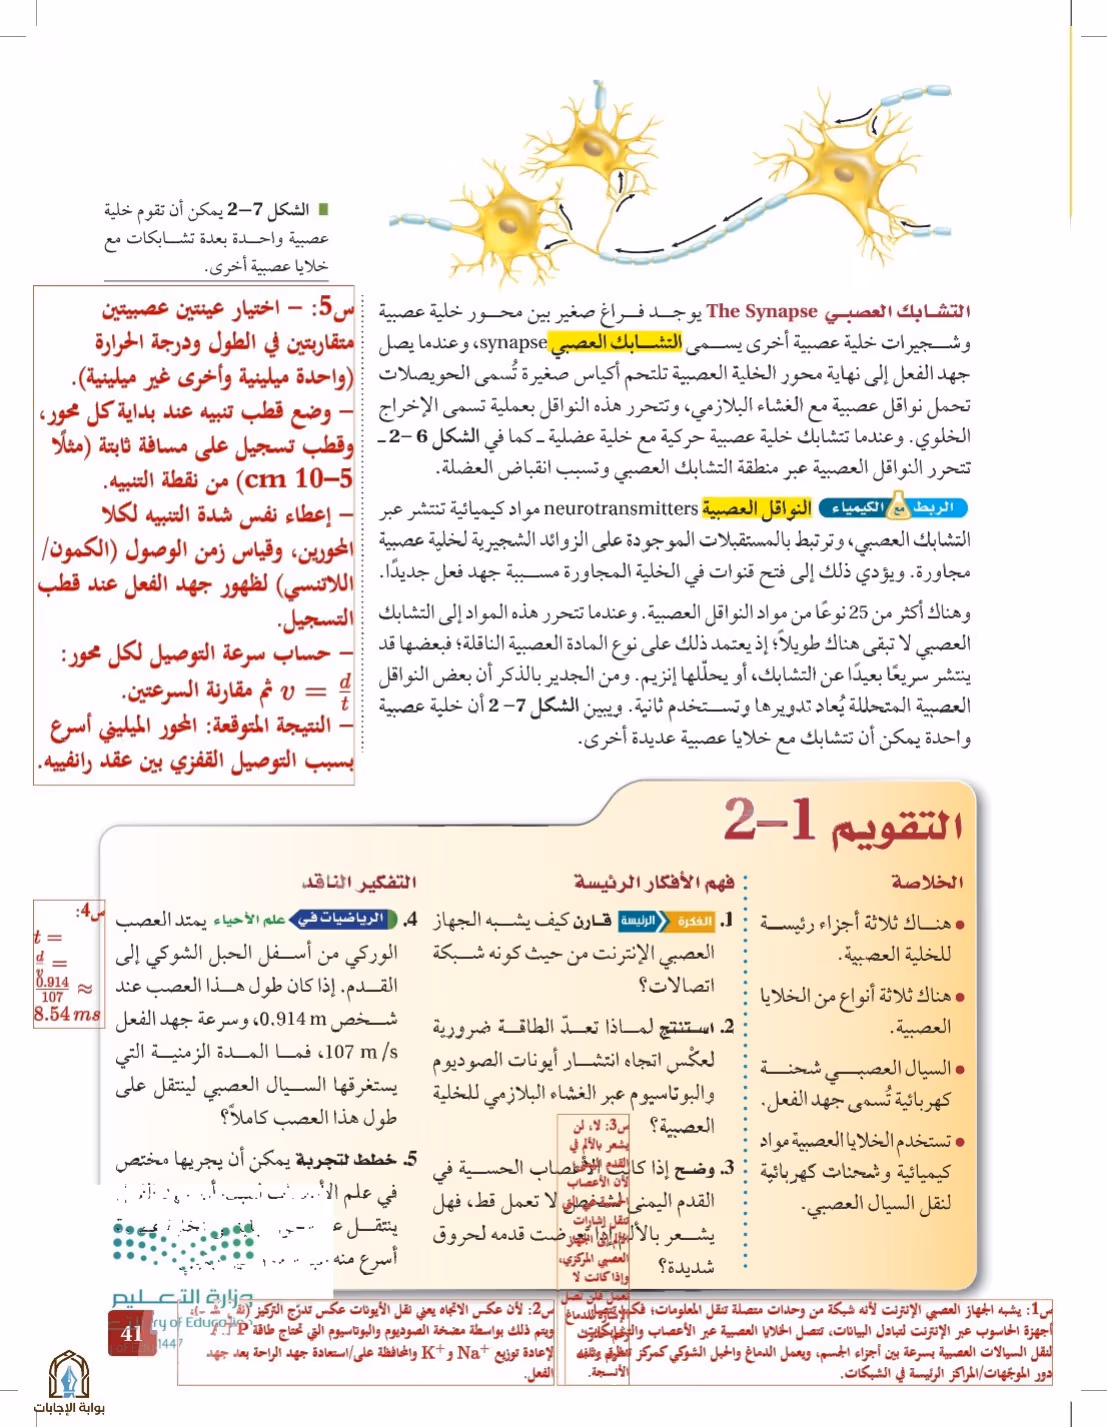 الشكل 7–2 يمكن أن تقوم خلية
عصبية واحدة بعدة تشابكات مع
خلايا عصبية أخرى.
التشابك العصبي The Synapse يوجد فراغ صغير بين محور خلية عصبية
وشجيرات خلية عصبية أخرى يسمى التشابك العصبي synapse، وعندما يصل
جهد الفعل إلى نهاية محور الخلية العصبية تلتحم أكياس صغيرة تُسمى الحويصلات
تحمل نواقل عصبية مع الغشاء البلازمي، وتتحرر هذه النواقل بعملية تسمى الإخراج
الخلوي. وعندما تتشابك خلية عصبية حركية مع خلية عضلية ـ كما في الشكل 6 –2 ـ
تتحرر النواقل العصبية عبر منطقة التشابك العصبي وتسبب انقباض العضلة.
الربط مع الكيمياء النواقل العصبية neurotransmitters مواد كيميائية تنتشر عبر
التشابك العصبي، وترتبط بالمستقبلات الموجودة على الزوائد الشجيرية لخلية عصبية
مجاورة. ويؤدي ذلك إلى فتح قنوات في الخلية المجاورة مسببة جهد فعل جديدًا.
وهناك أكثر من 25 نوعًا من مواد النواقل العصبية. وعندما تتحرر هذه المواد إلى التشابك
العصبي لا تبقى هناك طويلاً؛ إذ يعتمد ذلك على نوع المادة العصبية الناقلة؛ فبعضها قد
ينتشر سريعًا بعيدًا عن التشابك، أو يحلّلها إنزيم. ومن الجدير بالذكر أن بعض النواقل
العصبية المتحللة يُعاد تدويرها وتستخدم ثانية. ويبين الشكل 7– 2 أن خلية عصبية
واحدة يمكن أن تتشابك مع خلايا عصبية عديدة أخرى.
س5: – اختيار عينتين عصبيتين
متقاربتين في الطول ودرجة الحرارة
(واحدة ميلينية وأخرى غير ميلينية).
– وضع قطب تنبيه عند بداية كل محور،
وقطب تسجيل على مسافة ثابتة (مثلًا
5–10 cm) من نقطة التنبيه.
– إعطاء نفس شدة التنبيه لكلا
المحورين، وقياس زمن الوصول (الكمون/
اللاتنسي) لظهور جهد الفعل عند قطب
التسجيل.
– حساب سرعة التوصيل لكل محور:
v = d/t ثم مقارنة السرعتين.
– النتيجة المتوقعة: المحور الميليني أسرع
بسبب التوصيل القفزي بين عقد رانفييه.
التقويم 1–2
الخلاصة
هناك ثلاثة أجزاء رئيسة
للخلية العصبية.
هناك ثلاثة أنواع من الخلايا
العصبية.
السيال العصبي شحنة
كهربائية تُسمى جهد الفعل.
تستخدم الخلايا العصبية مواد
كيميائية وشحنات كهربائية
لنقل السيال العصبي.
فهم الأفكار الرئيسة
1. الفكرة الرئيسة قارن كيف يشبه الجهاز
العصبي الإنترنت من حيث كونه شبكة
اتصالات؟
2. استنتج لماذا تعدّ الطاقة ضرورية
لعكْس اتجاه انتشار أيونات الصوديوم
والبوتاسيوم عبر الغشاء البلازمي للخلية
العصبية؟
3. وضح إذا كانت الأعصاب الحسية في
القدم اليمنى لشخص لا تعمل قط، فهل
يشعر بالألم إذا تعرضت قدمه لحروق
شديدة؟
التفكير الناقد
4. الرياضيات في علم الأحياء يمتد العصب
الوركي من أسفل الحبل الشوكي إلى
القدم. إذا كان طول هذا العصب عند
شخص 0.914 m، وسرعة جهد الفعل
107 m/s، فما المدة الزمنية التي
يستغرقها السيال العصبي لينتقل على
طول هذا العصب كاملاً؟
5. خطط لتجربة يمكن أن يجريها مختص
في علم
ينتقل
أسرع منه
س4:
t =
d/v =
0.914/107 ≈
8.54 ms
س3: لا، لن
يشعر بالألم في
القدم
لأن الأعصاب
تنقل إشارات
العصبي المركزي،
وإذا كانت لا
تعمل فلن تصل
الأنسجة.
س1: يشبه الجهاز العصبي الإنترنت لأنه شبكة من وحدات متصلة تنقل المعلومات؛ فكما تتصل
أجهزة الحاسوب عبر الإنترنت لتبادل البيانات، تتصل الخلايا العصبية عبر الأعصاب والتشابكات
لنقل السيالات العصبية بسرعة بين أجزاء الجسم، ويعمل الدماغ والحبل الشوكي كمركز
دور الموجّهات/المراكز الرئيسة في الشبكات.
س2: لأن عكس الاتجاه يعني نقل الأيونات عكس تدرّج التركيز
ويتم ذلك بواسطة مضخة الصوديوم والبوتاسيوم التي تحتاج طاقة
لإعادة توزيع Na⁺ و K⁺ والمحافظة على/استعادة جهد الراحة بعد جهد
الفعل.
وزارة التعليم
41
1447
بوابة الإجابات